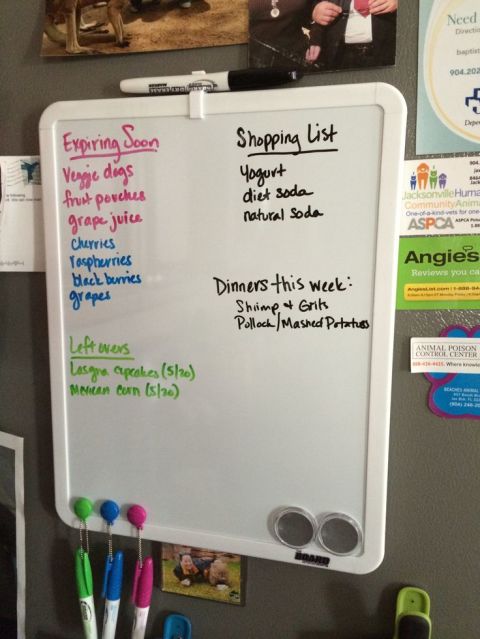 Expiring Soon
Veggie dogs
fruit pouches
grape juice
cherries
raspberries
blackberries
grapes
Leftovers
Lasgna cupcakes (5/20)
Mexican corn (5/20)
Shopping List
yogurt
diet soda
natural soda
Dinners this week:
Shrimp & Grits
Pollock/Mashed Potatoes
BOARD
Need
Directi
baptis
904.202
Depe
Jacksonville Huma
Community Anima
One-of-a-kind-vets for one
ASPCA
Angie's
Reviews you ca
AngiesList.com | 1-888-94
ANIMAL POISON
CONTROL CENTER
888-426-4435. Where knowle
BEACHES ANIMAL
(904) 246-20